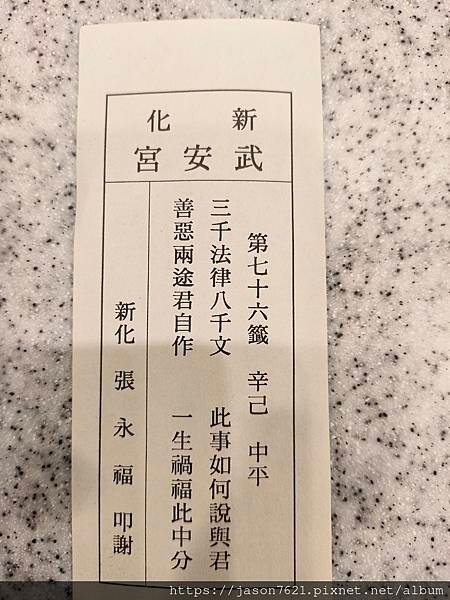 新化
武安宮
第七十六籤 辛己 中平
三千法律八千文 此事如何說與君
善惡兩途君自作 一生禍福此中分
新化 張永福 叩謝
https://jason7621.pixnet.net/album